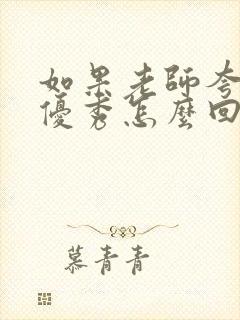 如果老師夸
優秀怎麼回
慕青青